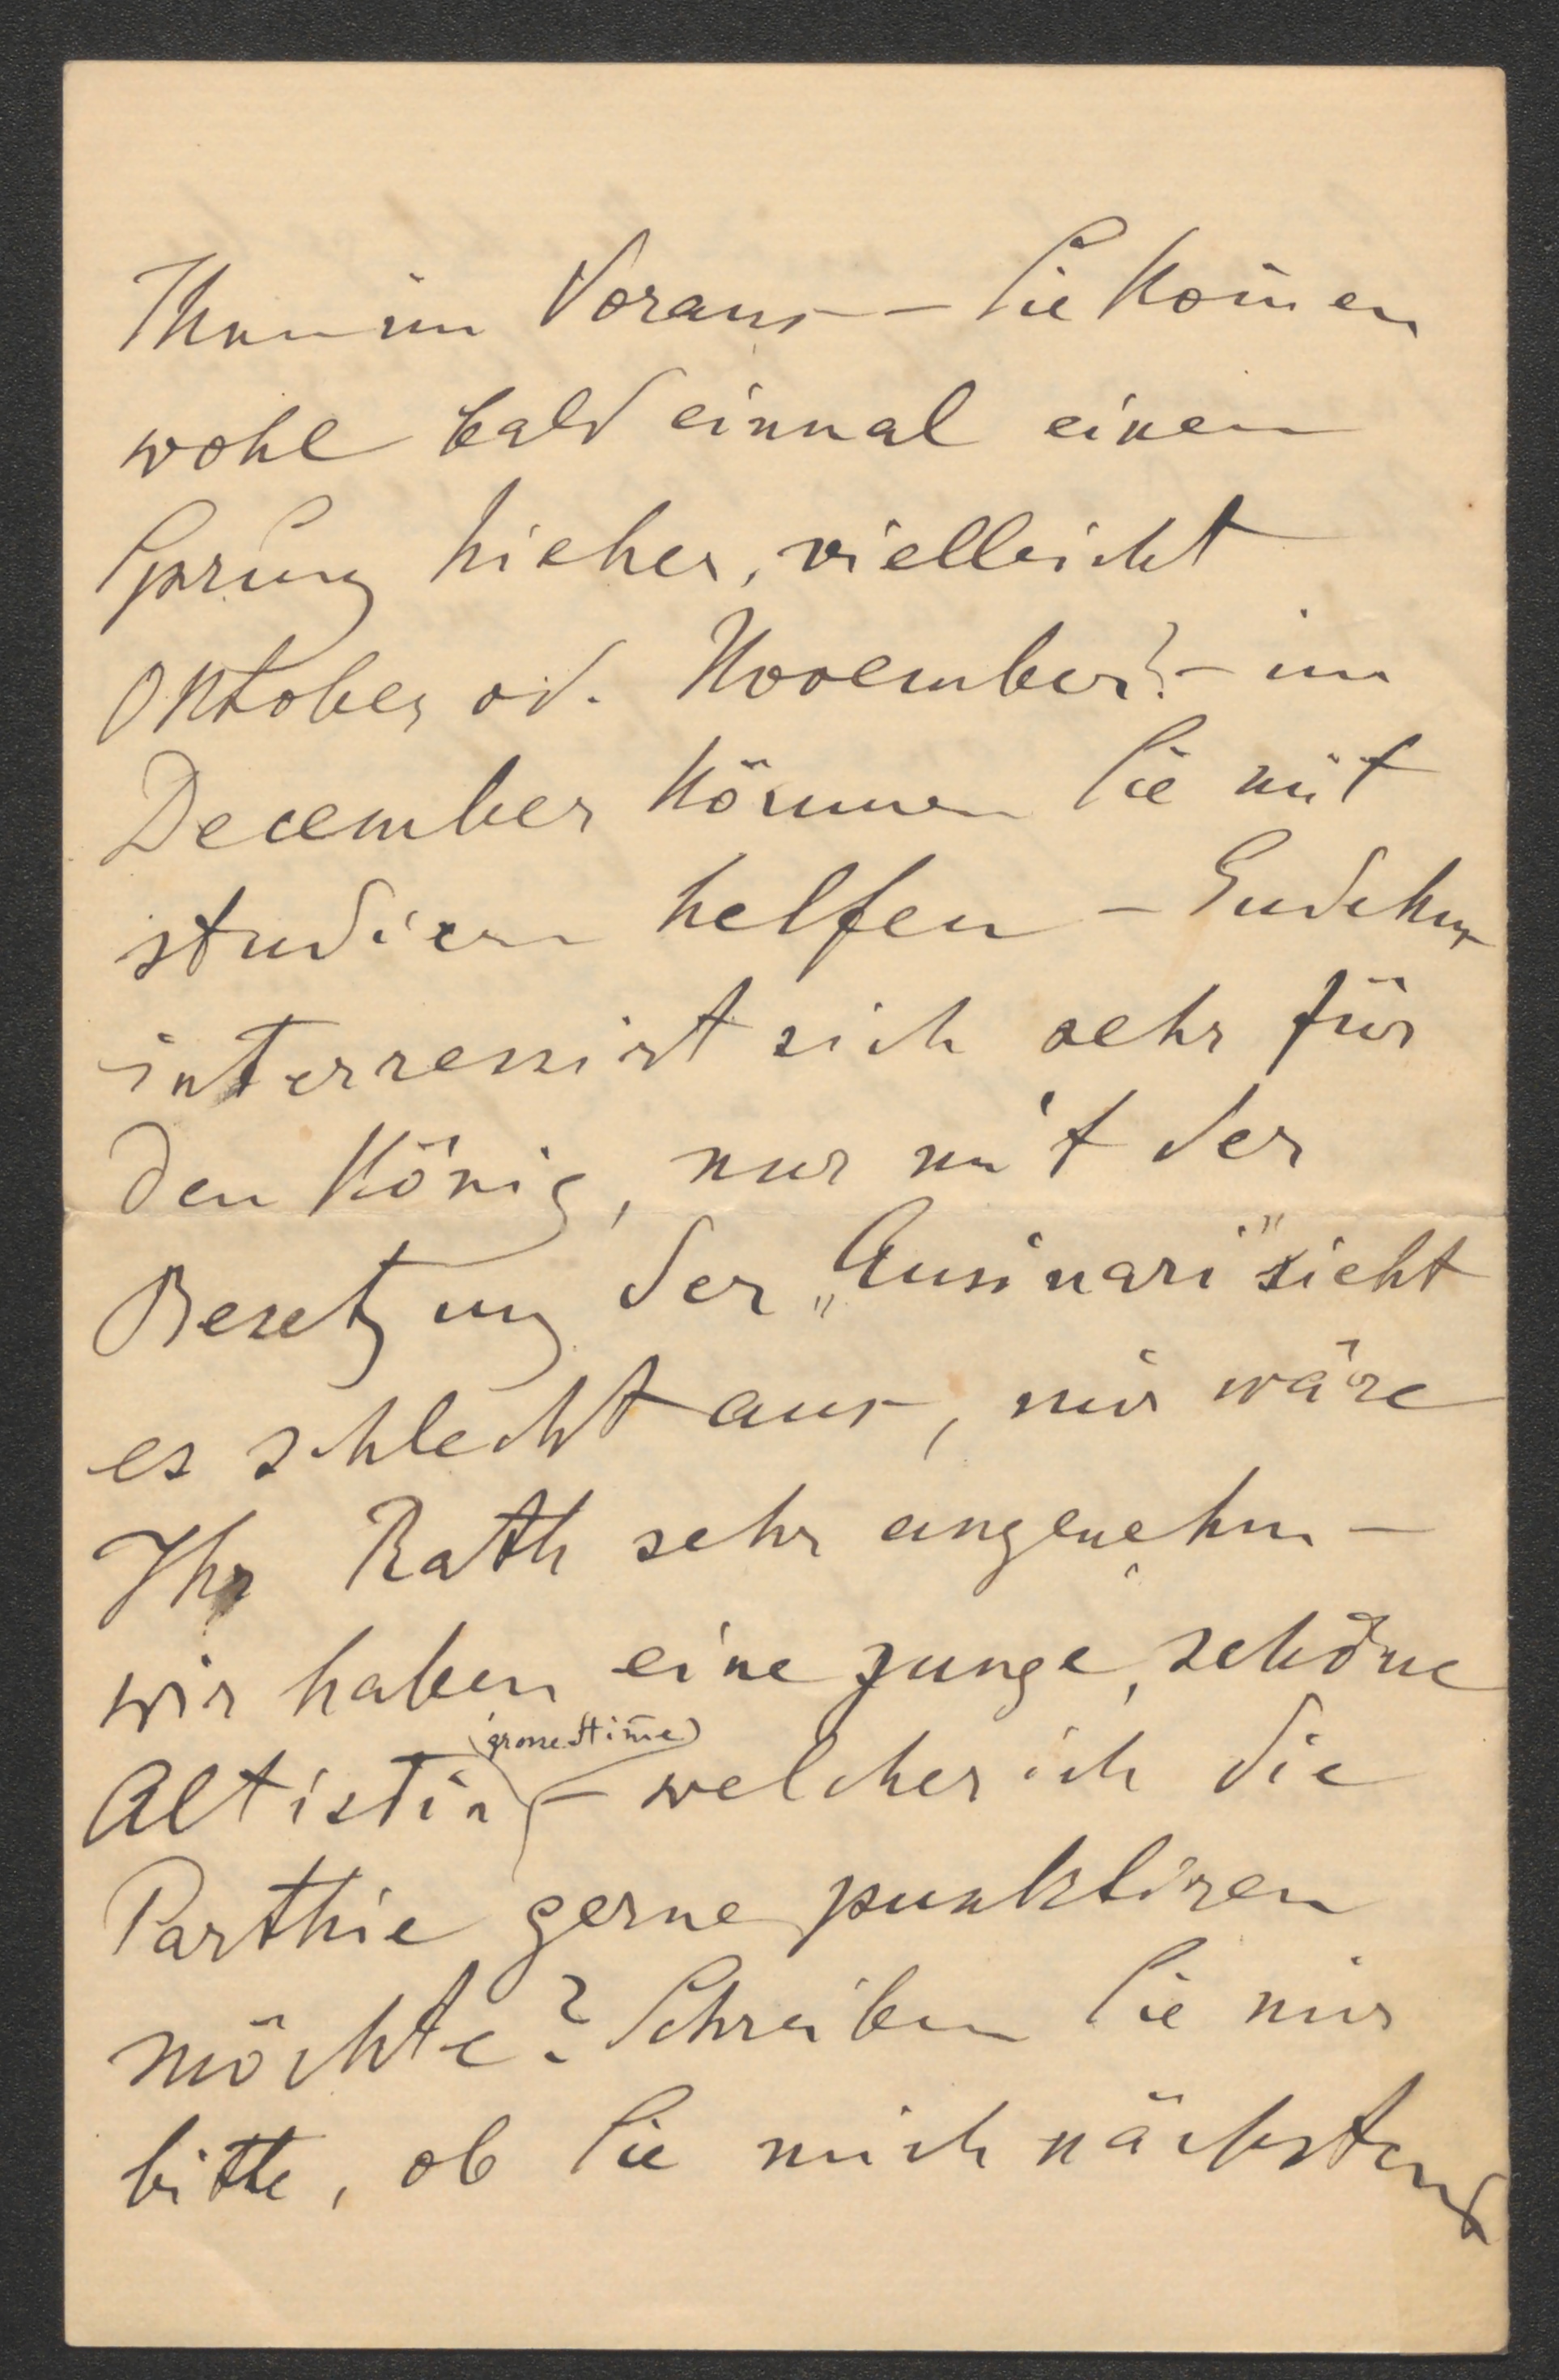 Ihnen im Voraus – Sie kom̄en
wohl bald einmal einen
Sprung hieher, vielleicht
Oktober od. November? – im
December können Sie mit
studiren helfen – Gudehus
interressirt sich sehr für
den König, nur mit der
Besetzung der „Ausinari" sieht
es schlecht aus, mir wäre
Ihr Rath sehr angenehm –
wir haben eine junge, schöne
(grosse Stim̄e)
Altistin – welcher ich die
Parthie gerne punktiren
möchte? Schreiben Sie mir
bitte, ob Sie mich nächstens